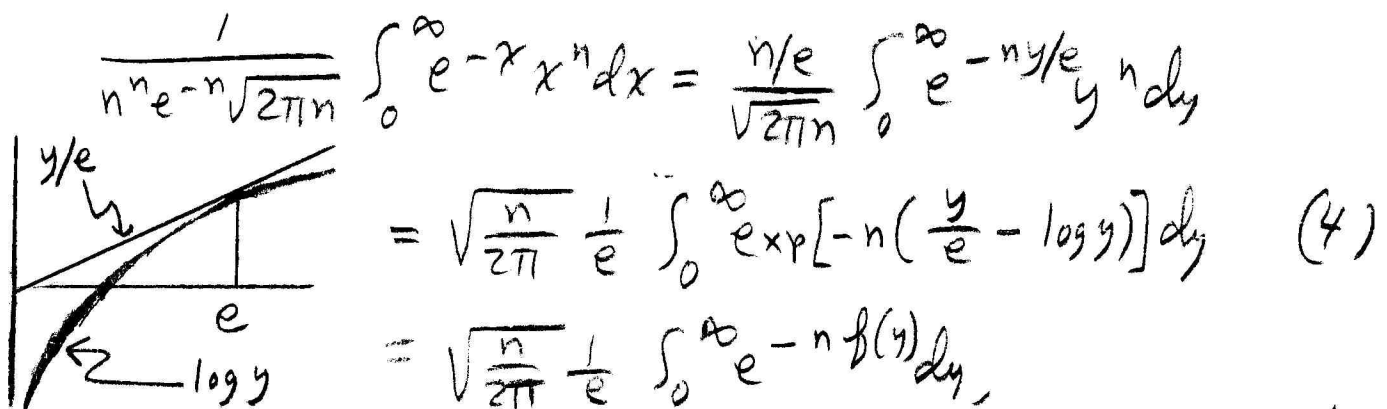 \frac{1}{n^n e^{-n} \sqrt{2\pi n}} \int_0^\infty e^{-x} x^n dx = \frac{n/e}{\sqrt{2\pi n}} \int_0^\infty e^{-ny/e} y^n dy
y/e
= \sqrt{\frac{n}{2\pi}} \frac{1}{e} \int_0^\infty \exp[-n(\frac{y}{e} - \log y)] dy (4)
e
= \sqrt{\frac{n}{2\pi}} \frac{1}{e} \int_0^\infty e^{-n f(y)} dy,
log y